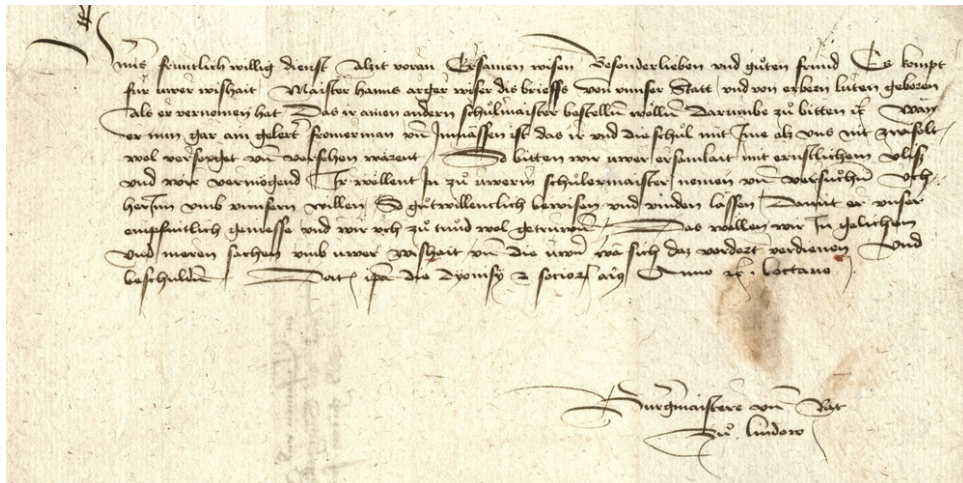 Unns fruntlich willig dienst Alzit voran Ersamen wisen Besonderlieben vnd gůten frund Es kompt
für uwer wishait Maister hanns arger wiser dis brieffs von vnnser Statt vnd von erbern lüten geboren
Als er vernomen hat Das ir ainen andern schůlmaister bestellen wellen Darumbe zů bitten ist Wan
er nun gar ain gelert fromerman vnd Inmässen ist das ir vnd die schůl mit Ime als vns nit zwifelt
wol versorget vnd versehen wärent So bitten wir uwer ersamkait mit ernstlichem vlisz
vnd wir vermögend Ir wellent In zů uwerm schůlermaister nemen vnd versůchen Uch
herInn vmb vnnsern willen So gůtwillentlich bewisen vnd vinden lässen Damit er vnser
empfintlich geniesse vnd wir uch zů trüwen wol getruwen Das wellen wir In gelichem
vnd meren sachen vmb uwer wishait vnd die uwern wa sich daz vordert verdienen Vnd
beschulden Dat ipsa die Dyonisy & socior Anno octavo
Burgermaistere vnd Rat
Zů lindow